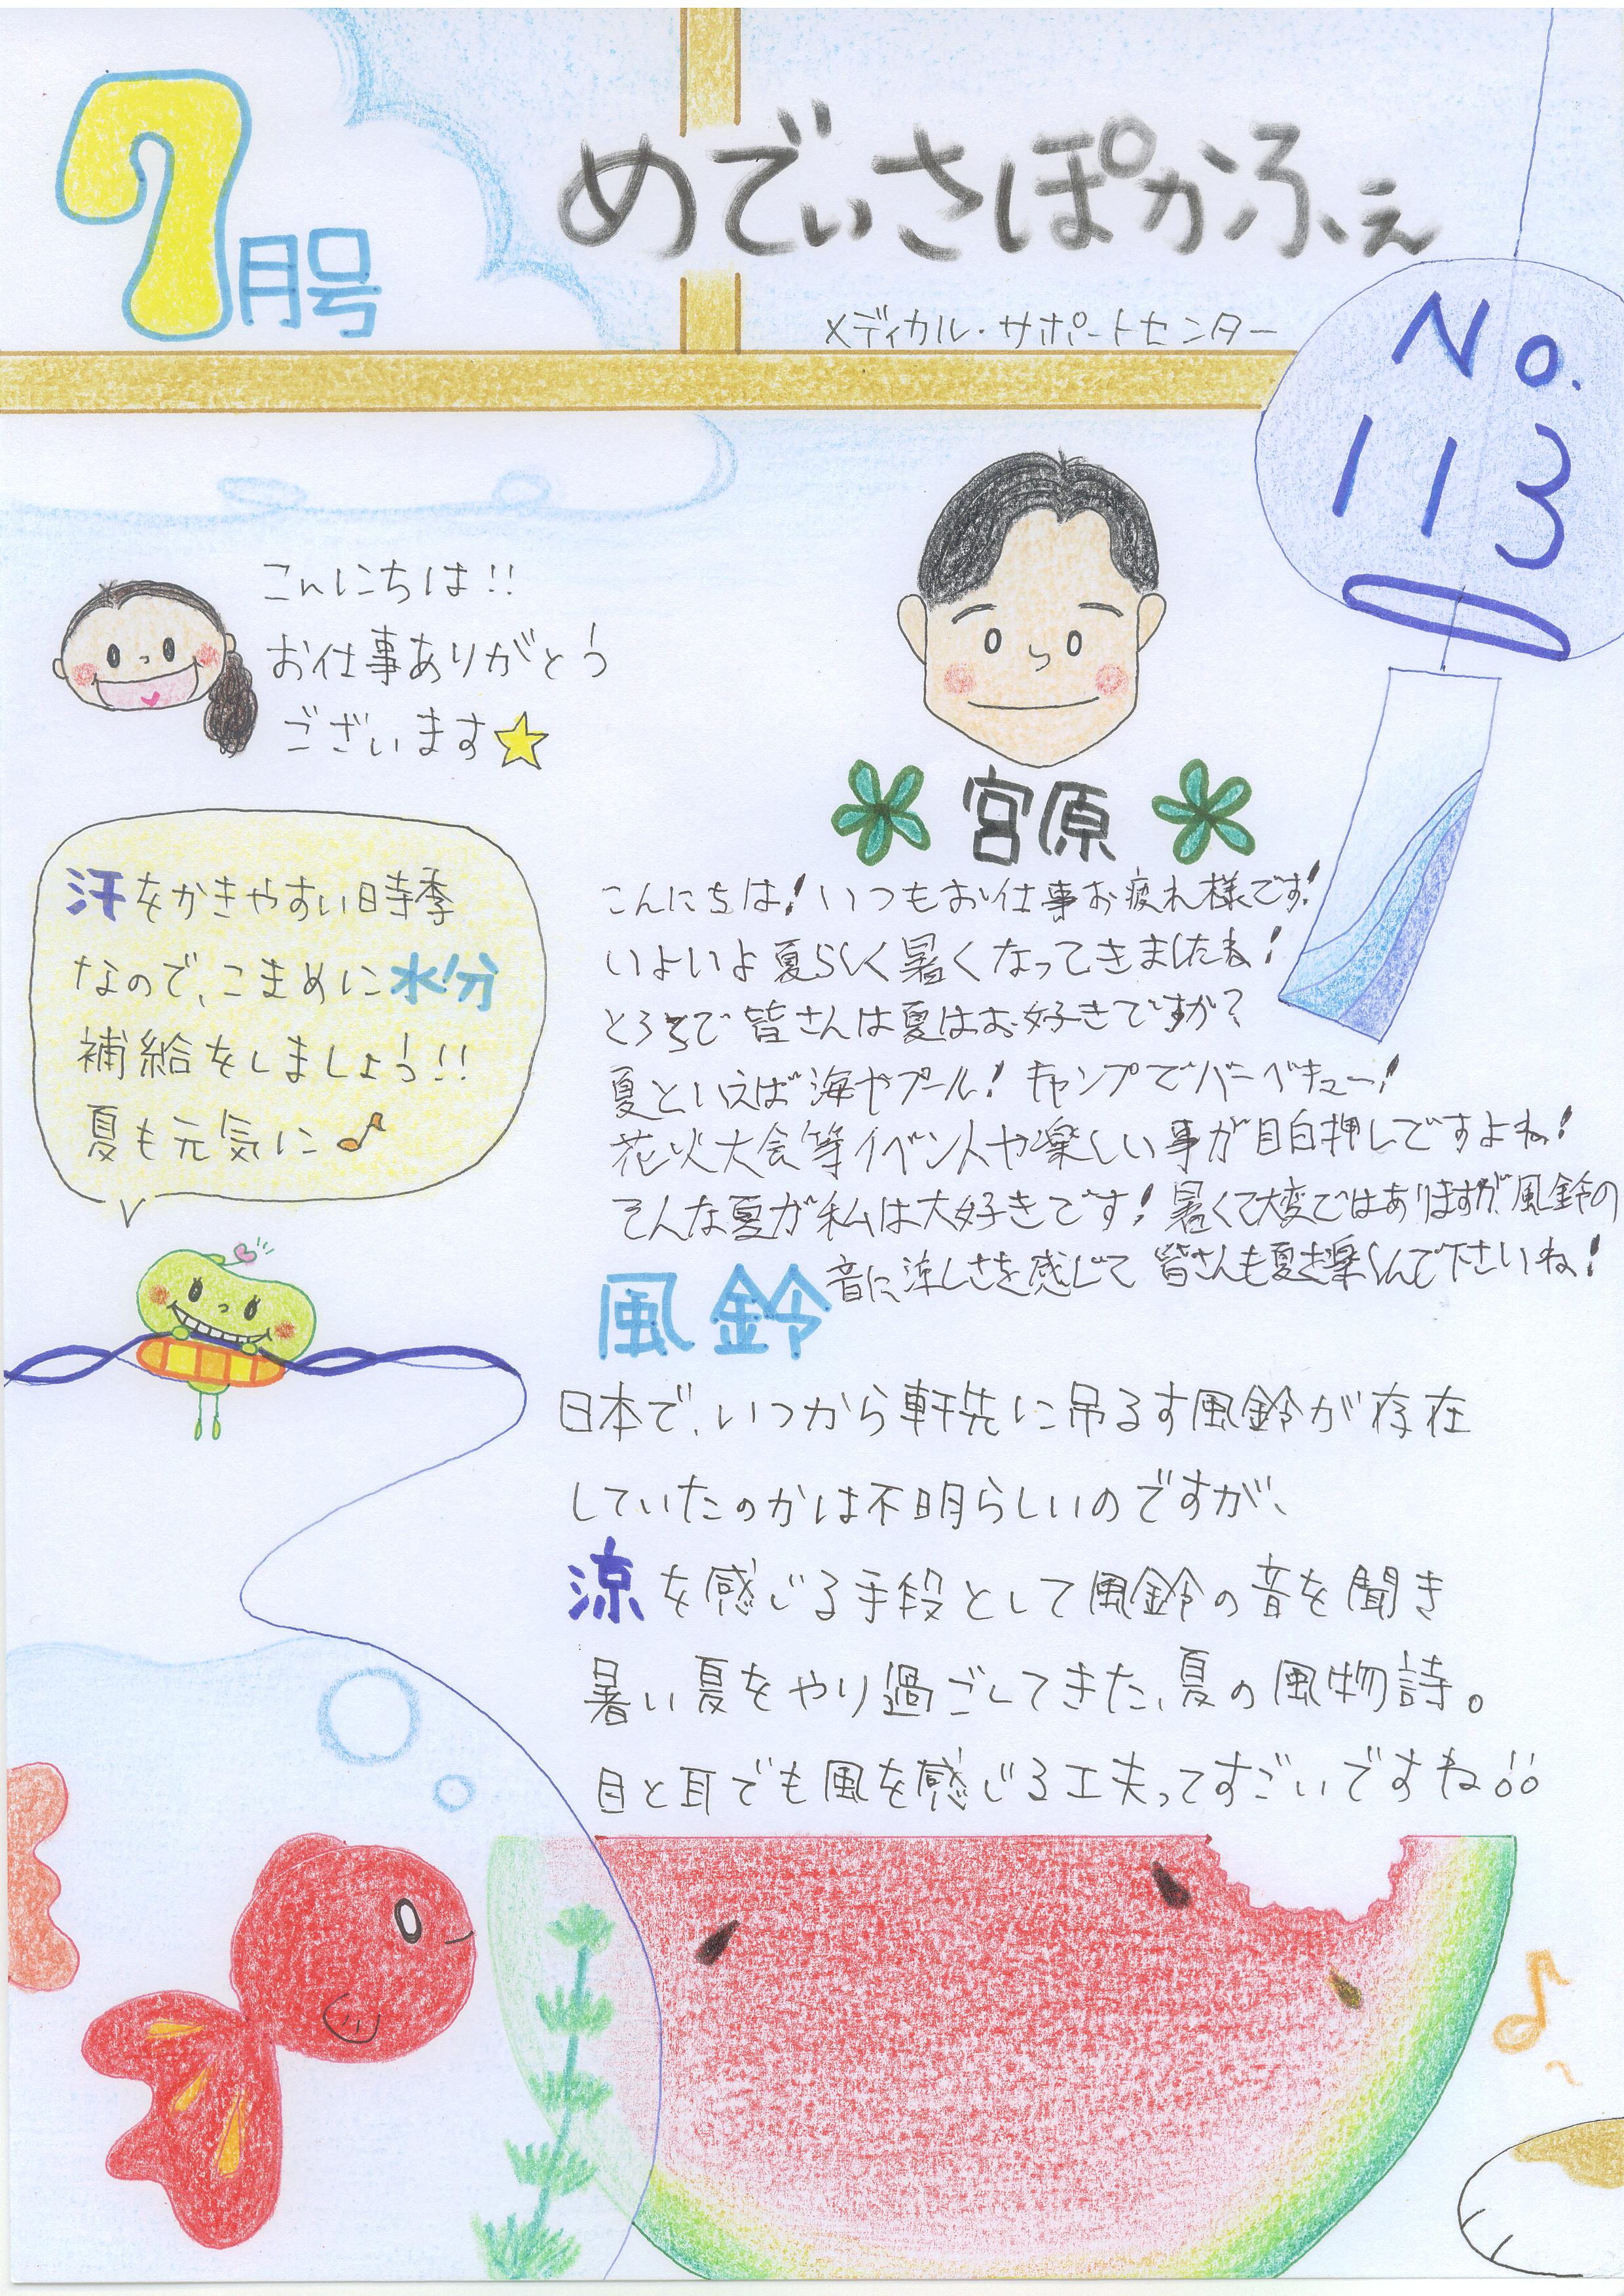 7月号
めでぃさぽかふぇ
メディカル・サポートセンター
No.
113
こんにちは!!
お仕事ありがとう
ございます
汗をかきやすい時季
なので、こまめに水分
補給をしましょう!!
夏も元気に♪
宮原
こんにちは!いつもお仕事お疲れ様です!
いよいよ夏らしく暑くなってきましたね!
ところで皆さんは夏はお好きですか?
夏といえば海やプール!キャンプでバーベキュー!
花火大会等イベントや楽しい事が目白押しですよね!
そんな夏が私は大好きです!暑くて大変ではありますが、風鈴の
音に涼しさを感じて皆さんも夏を楽しんで下さいね!
風鈴
日本で、いつから軒先に吊るす風鈴が存在
していたのかは不明らしいのですが、
涼を感じる手段として風鈴の音を聞き
暑い夏をやり過ごしてきた、夏の風物詩。
目と耳でも風を感じる工夫ってすごいですね!!